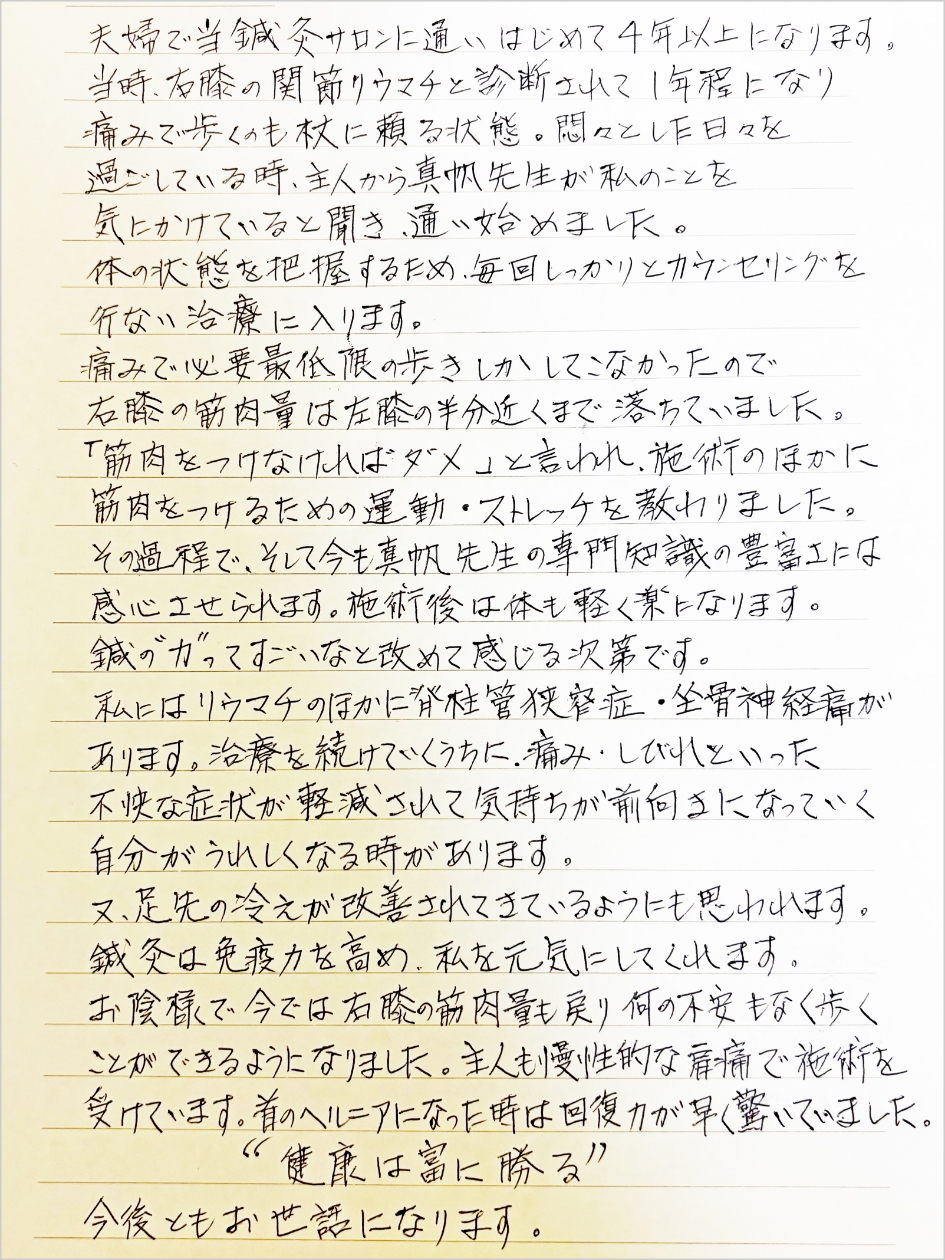 夫婦で当鍼灸サロンに通いはじめて4年以上になります。
当時、右膝の関節リウマチと診断されて1年程になり
痛みで歩くのも杖に頼る状態。悶々とした日々を
過ごしている時、主人から真帆先生が私のことを
気にかけていると聞き、通い始めました。
体の状態を把握するため、毎回しっかりとカウンセリングを
行ない治療に入ります。
痛みで必要最低限の歩きしかしてこなかったので
右膝の筋肉量は左膝の半分近くまで落ちていました。
「筋肉をつけなければダメ」と言われ、施術のほかに
筋肉をつけるための運動・ストレッチを教わりました。
その過程で、そして今も真帆先生の専門知識の豊富さには
感心させられます。施術後は体も軽く楽になります。
鍼の"力"ってすごいなと改めて感じる次第です。
私にはリウマチのほかに脊柱管狭窄症・坐骨神経痛が
あります。治療を続けていくうちに、痛み・しびれといった
不快な症状が軽減されて気持ちが前向きになっていく
自分がうれしくなる時があります。
又、足先の冷えが改善されてきているようにも思われます。
鍼灸は免疫力を高め、私を元気にしてくれます。
お陰様で今では右膝の筋肉量も戻り何の不安もなく歩く
ことができるようになりました。主人も慢性的な肩痛で施術を
受けています。首のヘルニアになった時は回復力が早く驚いていました。
“健康は富に勝る”
今後ともお世話になります。